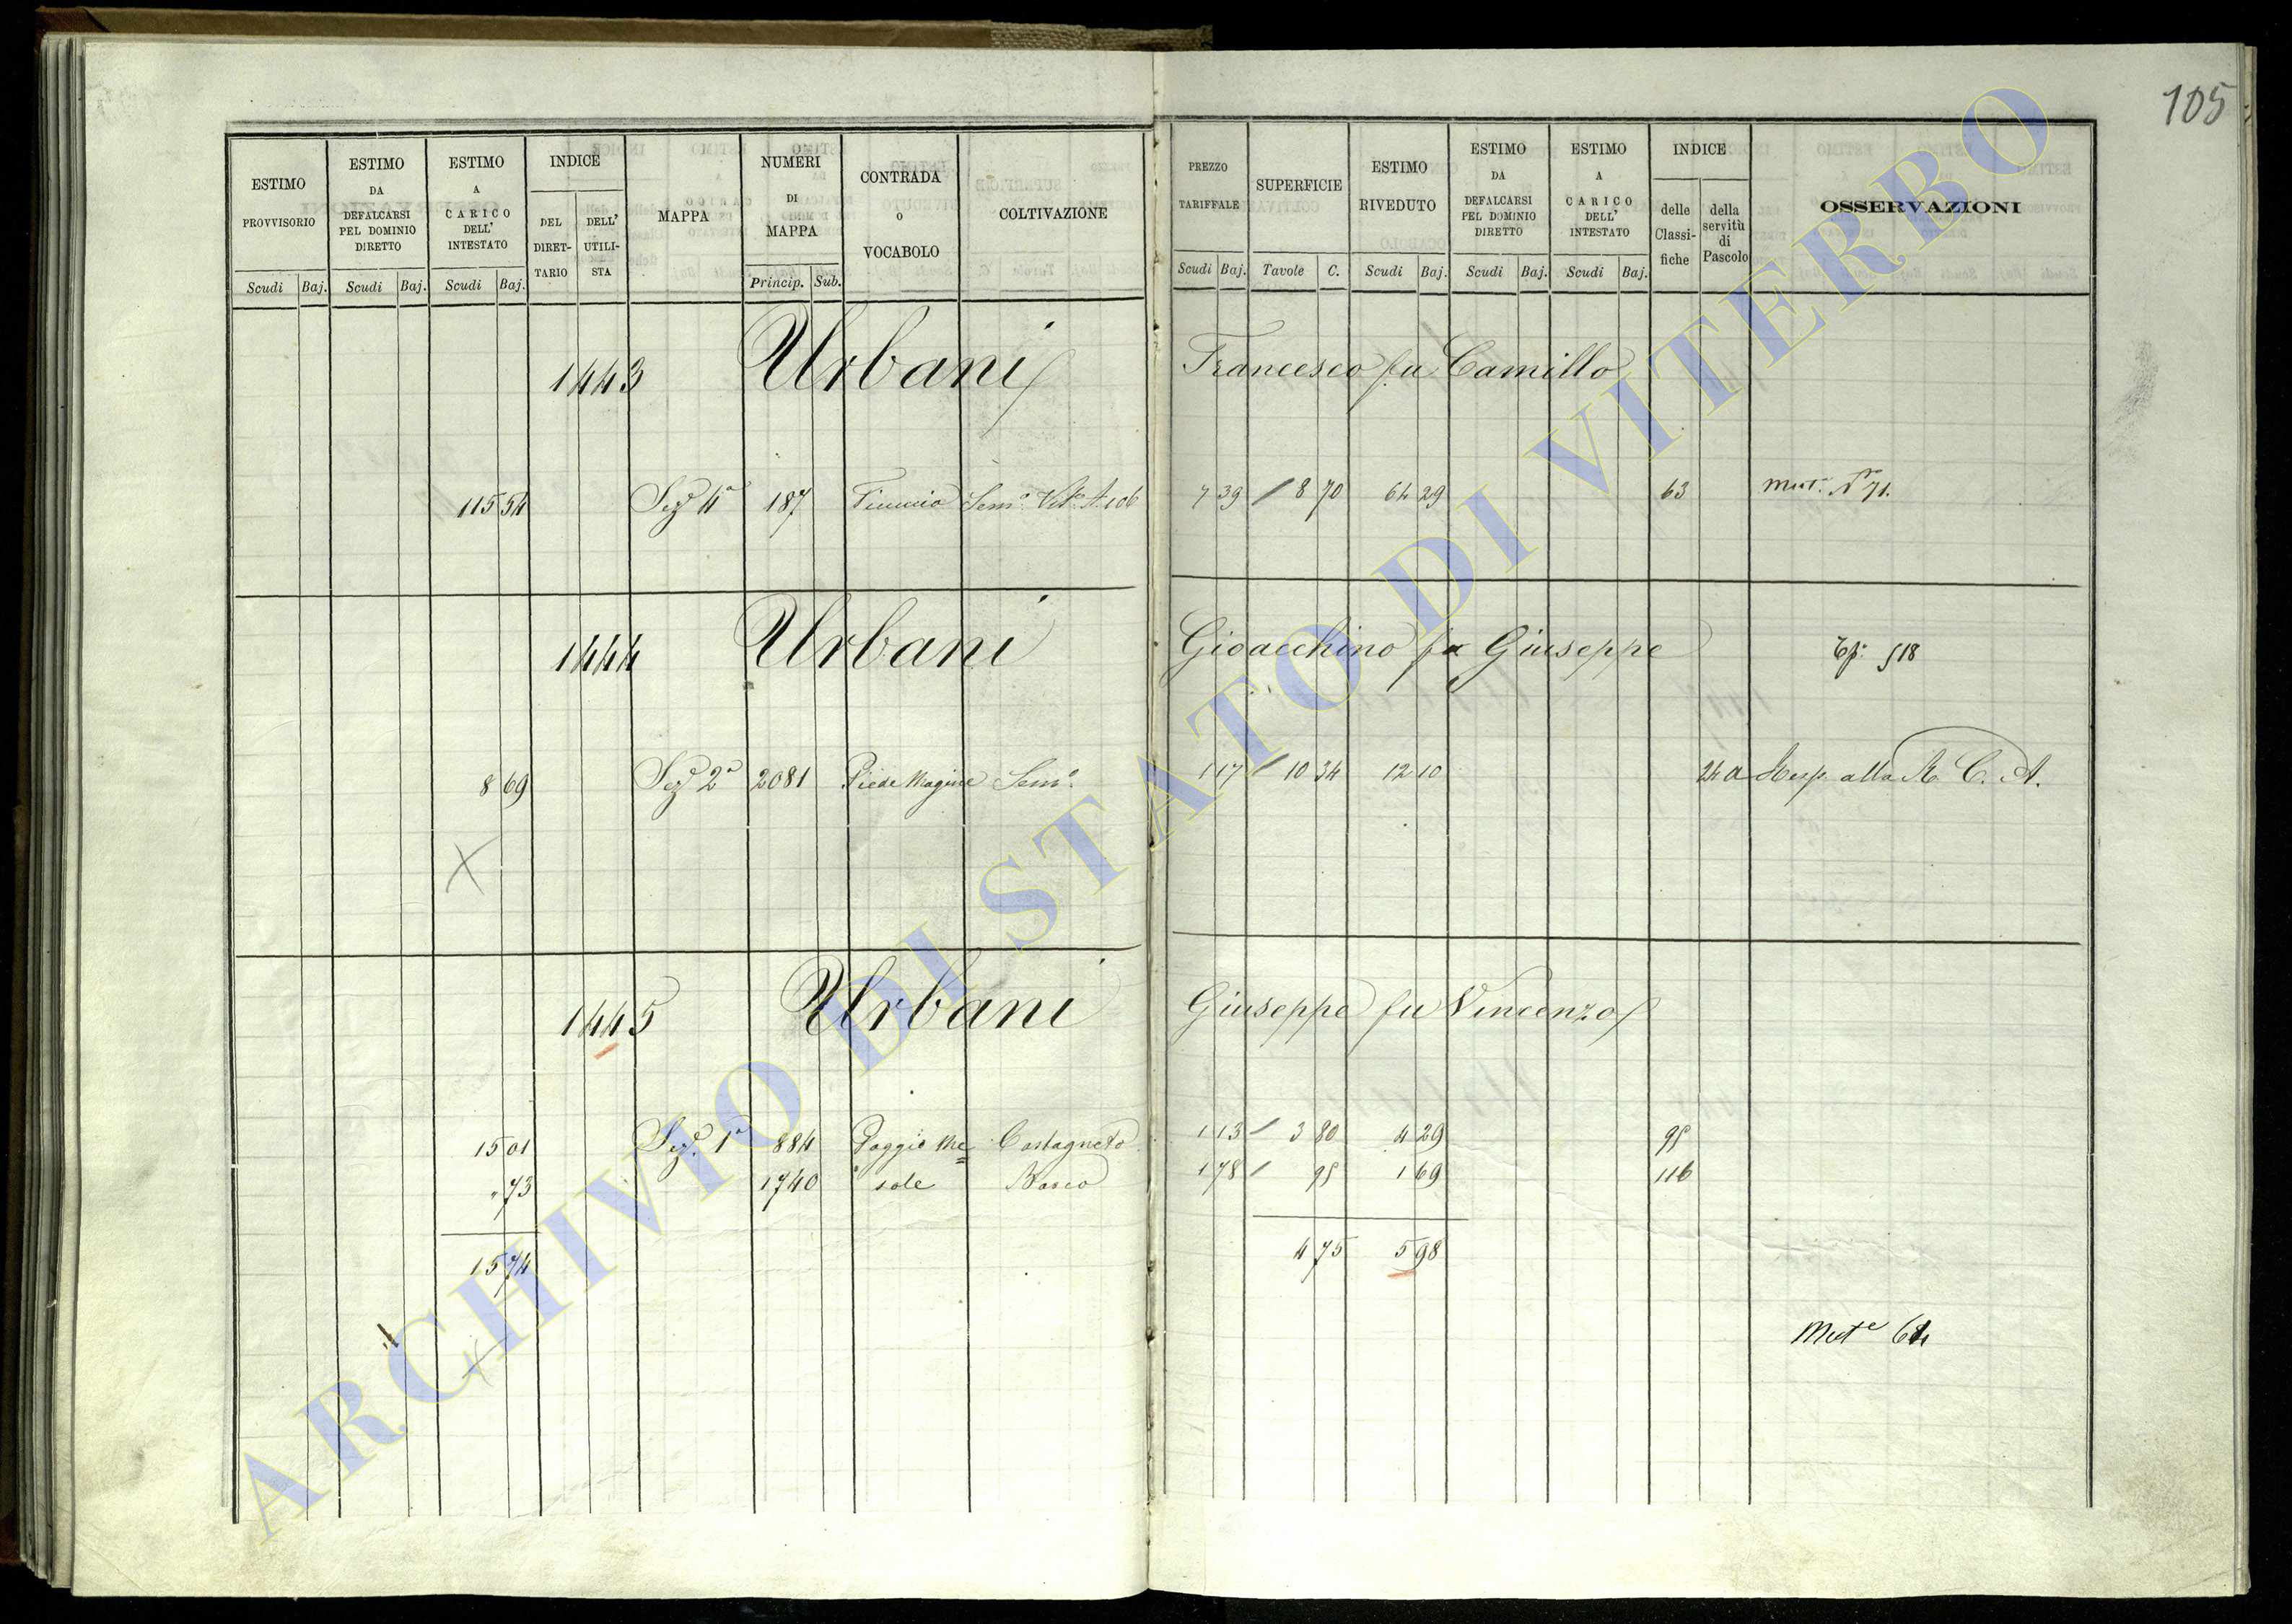 105
ESTIMO PROVVISORIO
ESTIMO DA DEFALCARSI PEL DOMINIO DIRETTO
ESTIMO A CARICO DELL' INTESTATO
INDICE
DEL DIRET-TARIO
DELL' UTILI-STA
MAPPA
NUMERI DI MAPPA
CONTRADA O VOCABOLO
COLTIVAZIONE
PREZZO TARIFFALE
SUPERFICIE
ESTIMO RIVEDUTO
ESTIMO DA DEFALCARSI PEL DOMINIO DIRETTO
ESTIMO A CARICO DELL' INTESTATO
INDICE
delle Classi-fiche
della servitù di Pascolo
OSSERVAZIONI
Scudi Baj. Scudi Baj. Scudi Baj. Princip. Sub. Scudi Baj. Tavole C. Scudi Baj. Scudi Baj. Scudi Baj.
1443 Urbani Francesco fu Camillo
115 54 Sezᵉ 4ª 187 Semº Vitº 7 39 8 70 64 29 63 Mutª Nº 71.
1444 Urbani Gioacchino fu Giuseppe 518
8 69 Sezᵉ 2ª 2081 Piede Magine Semº 1 17 10 34 12 10 24 a alla R. C. A.
1445 Urbani Giuseppe fu Vincenzo
15 01 Sezᵉ 1ª 884 Poggio Me= Castagneto 1 13 3 80 4 29 95
" 73 1740 sole Bosco 1 78 95 1 69 116
15 74 4 75 5 98
Mutᵉ
ARCHIVIO DI STATO DI VITERBO